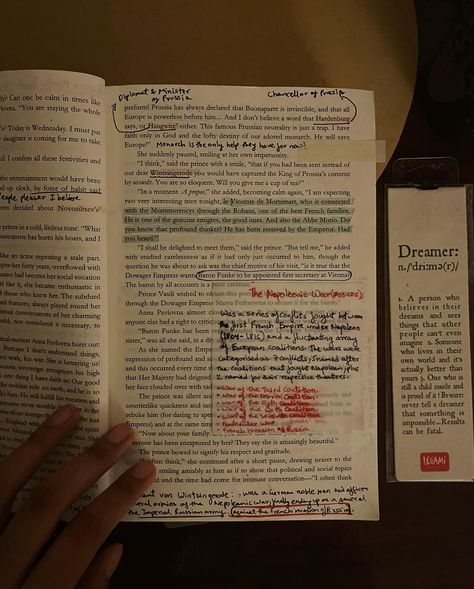 Diplomat & Minister
of Prussia
Chancellor of Prussia
ity? Can one be calm in times like
"You are staying the whole
Today is Wednesday. I must put
daughter is coming for me to take
I confess all these festivities and
the entertainment would have been
up clock, by force of habit said
People pleaser I believe
been decided about Novosiltsev's
prince in a cold, listless tone. "What
has burnt his boats, and I
like an actor repeating a stale part.
her forty years, overflowed with
had become her social vocation
like it, she became enthusiastic in
those who knew her. The subdued
features, always played round her
continual consciousness of her charming
nor considered it necessary, to
matters Anna Pavlovna burst out:
Perhaps I don't understand things,
wish, for war. She is betraying us!
sovereign recognises his high
one thing I have faith in! Our good
perform! Prussia has always declared that Buonaparte is invincible, and that all
Europe is powerless before him.... And I don't believe a word that Hardenburg
says, or Haugwitz either. This famous Prussian neutrality is just a trap. I have
faith only in God and the lofty destiny of our adored monarch. He will save
Europe!" Monarch is the only help they have for now!
She suddenly paused, smiling at her own impetuosity.
"I think," said the prince with a smile, "that if you had been sent instead of
our dear Wintzingerode you would have captured the King of Prussia's consent
by assault. You are so eloquent. Will you give me a cup of tea?"
"In a moment. A propos," she added, becoming calm again, "I am expecting
two very interesting men tonight, le Vicomte de Mortemart, who is connected
with the Montmorencys through the Rohans, one of the best French families.
He is one of the genuine emigrés, the good ones. And also the Abbe Morio. Do
you know that profound thinker? He has been received by the Emperor. Had
you heard?"
"I shall be delighted to meet them," said the prince. "But tell me," he added
with studied carelessness as if it had only just occurred to him, though the
question he was about to ask was the chief motive of his visit, "is it true that the
Dowager Empress wants Baron Funke to be appointed first secretary at Vienna?
The baron by all accounts is a poor creature."
Prince Vasili wished to obtain this
through the Dowager Empress Marya Fedorovna to secure it for the baron.
Anna Pavlovna almost
anyone else had a right to criticise
"Baron Funke has been
sister," was all she said, in a
As she named the Empress
expression of profound
and this occurred every time she
that Her Majesty had deigned
her face clouded over with sadness.
The prince was silent and
courtierlike quickness and tact
rebuke him (for daring to speak
Empress) and at the same time
"Now about your family.
anyone has been enraptured by her? They say she is amazingly beautiful."
The prince bowed to signify his respect and gratitude.
"I often think," she continued after a short pause, drawing nearer to the
smiling amiably at him as if to show that political and social topics
and the time had come for intimate conversation—"I often think
The Napoleonic War(1803-15)
Was a series of conflicts fought between
the first French Empire under Napoleon
(1804-1815) and a fluctuating array
of European coalitions. The wars were
categorised as 7 conflicts, 5 named after
the coalitions that fought Napoleon, plus
2 named for their respective theatres.
war of the Third Coalition
war of the fourth Coalition
war of the fifth Coalition
war of the sixth Coalition
war of the seventh Coalition
Peninsular war
French invasion of Russia
von Wintzingerode: - was a German nobleman and officer
several armies of the Napoleonic War, finally ending up as a general
the Imperial Russian army, against the French invasion of Russia.
Dreamer:
n./'dri:mə(r)/
1. A person who
believes in their
dreams and sees
things that other
people can't even
imagine 2. Someone
who lives in their
own world and it's
actually better than
yours 3. One who is
still a child inside and
is proud of it 4 Beware
never tell a dreamer
that something is
impossible... Results
can be fatal.
LEGAMI